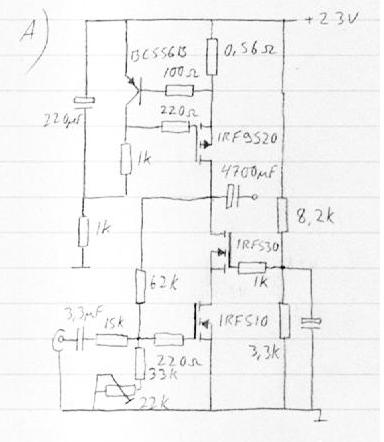 A)
+23V
BC556B
0,56Ω
100Ω
220µF
220Ω
IRF9520
1k
4700µF
8,2k
1k
IRF530
1k
62k
3,3µF
15k
IRF510
3,3k
220Ω
33k
22k